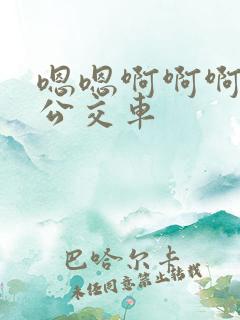 嗯嗯啊啊啊
公交车
巴哈尔卡
未经同意禁止转载